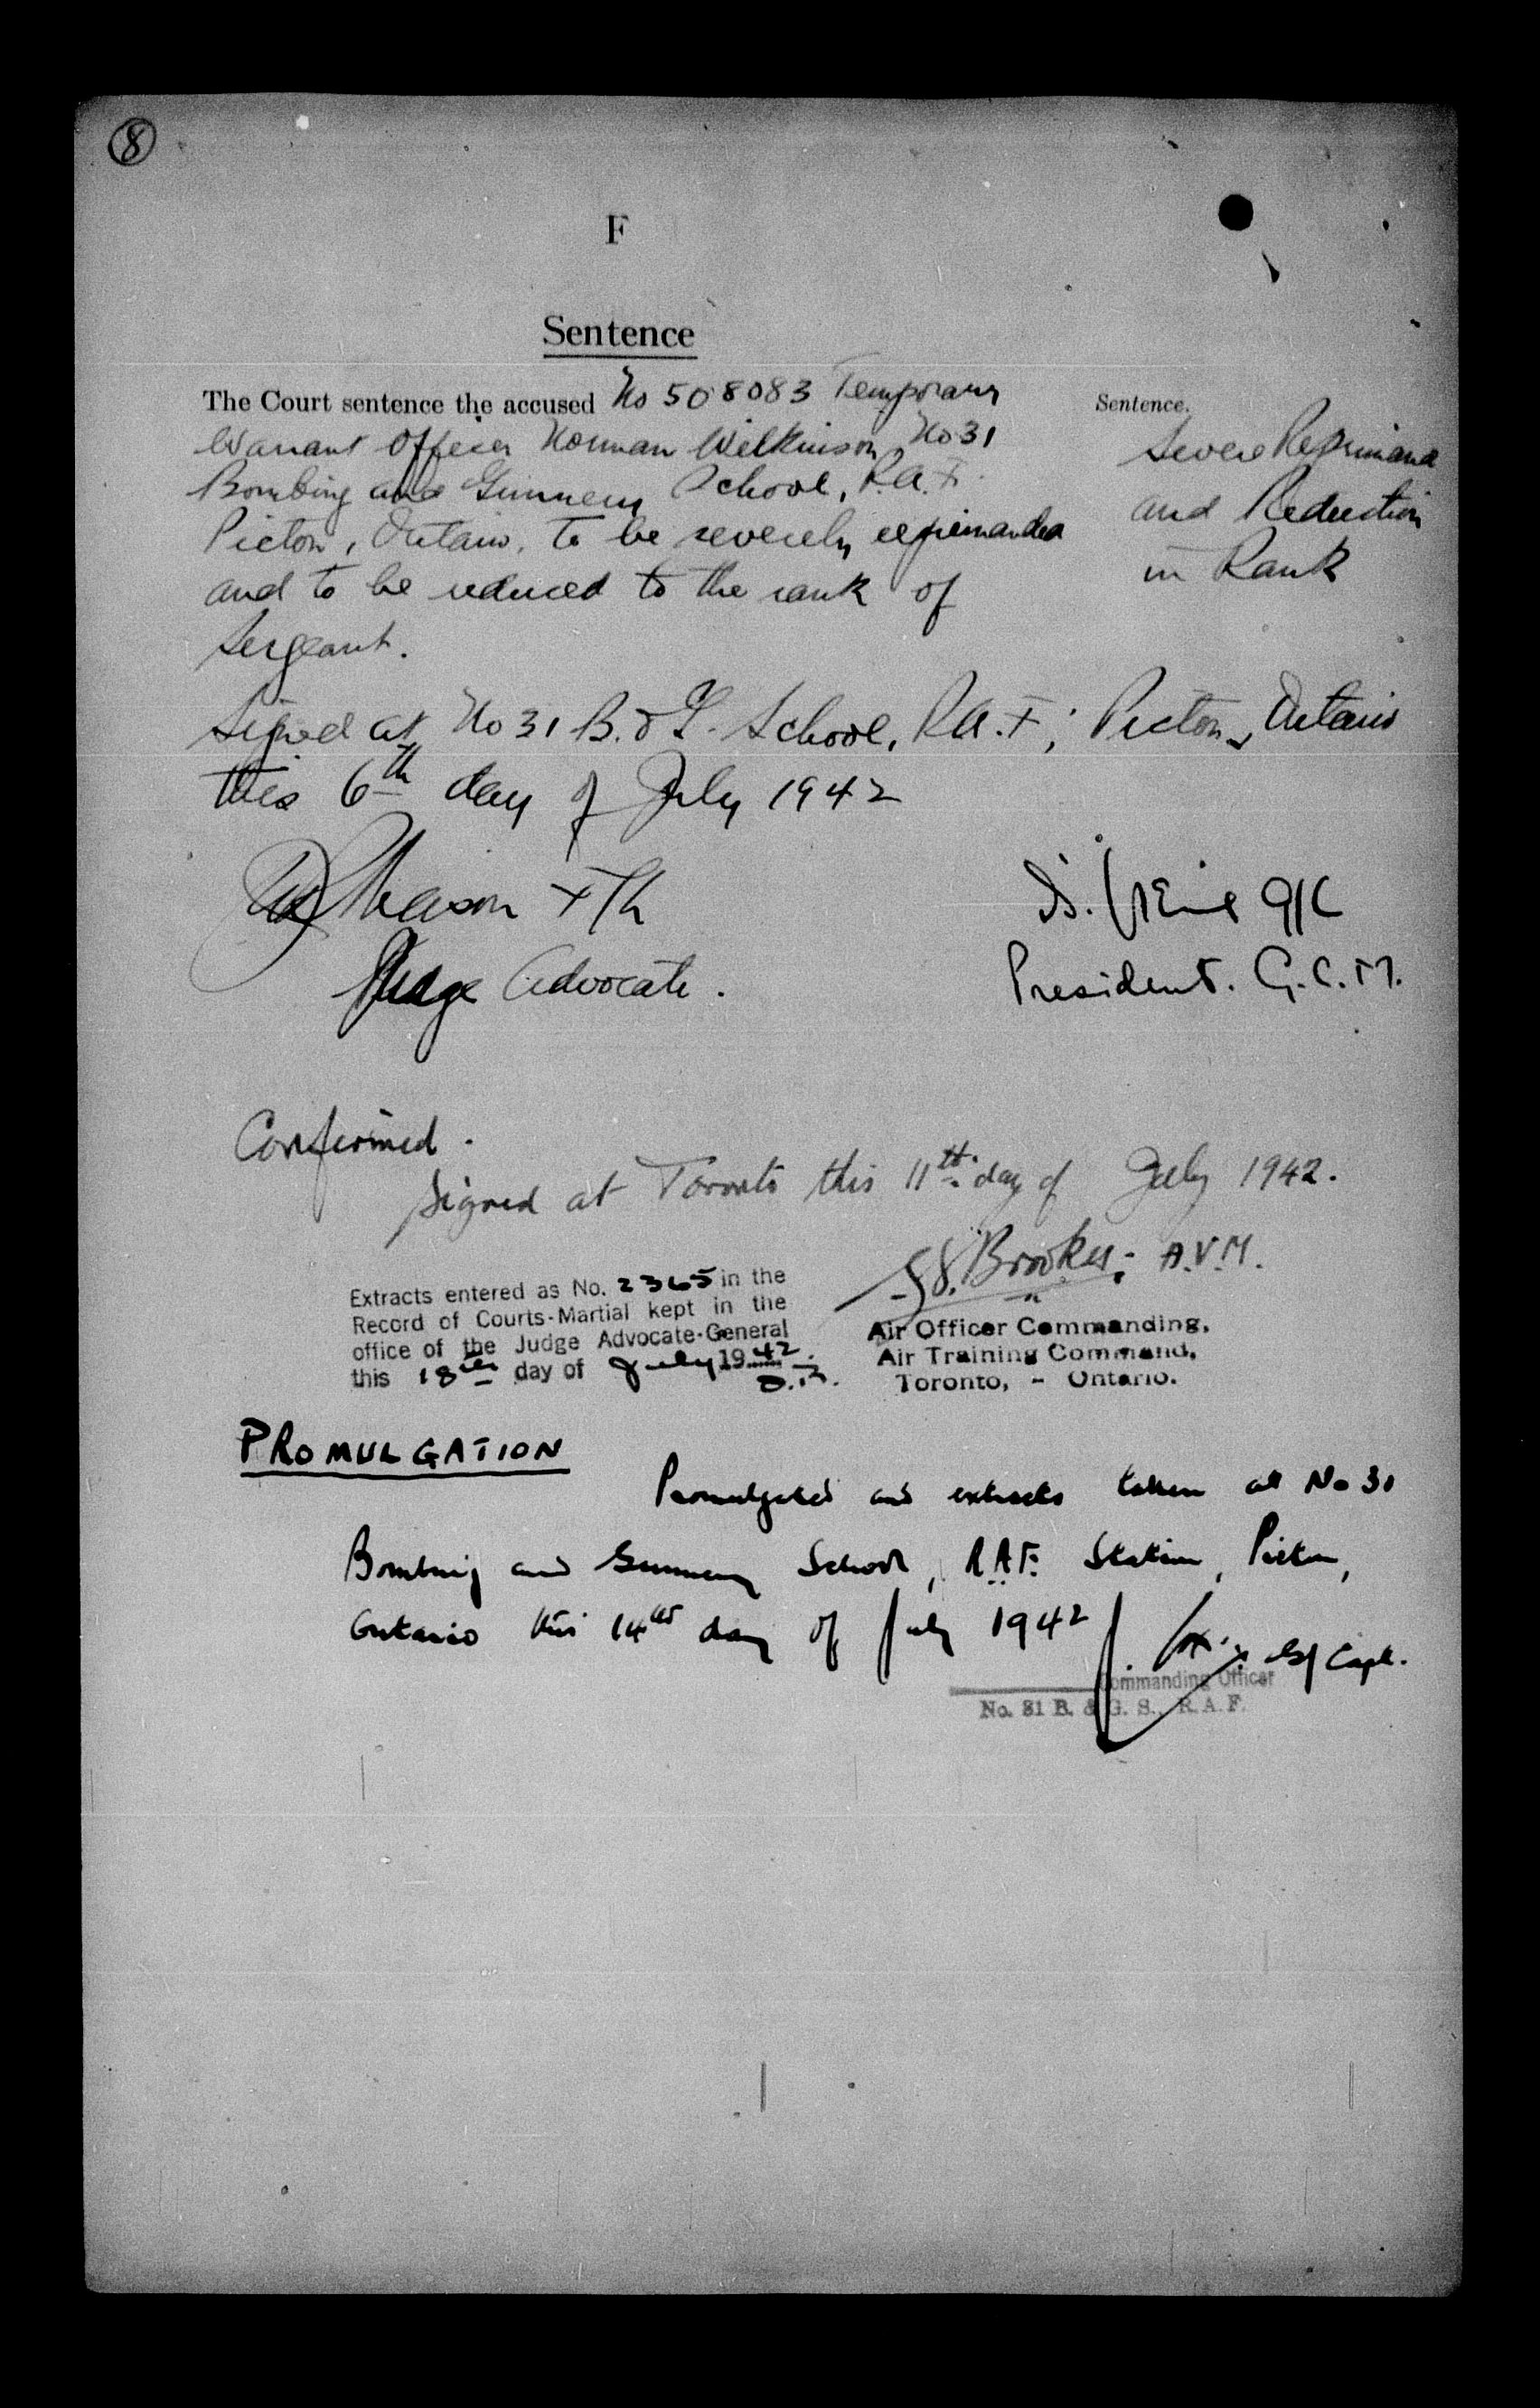 8
F
Sentence
The Court sentence the accused No 508083 Temporary
Warrant Officer Norman Wilkinson, No 31
Bombing and Gunnery School, R.A.F.
Picton, Ontario, to be severely reprimanded
and to be reduced to the rank of
Sergeant.
Sentence.
Severe Reprimand
and Reduction
in Rank
Signed at No 31 B. & G. School, R.A.F., Picton, Ontario
this 6th day of July 1942
Mason F/Lt
Judge Advocate.
G/C
President. G.C.M.
Confirmed.
Signed at Toronto this 11th day of July 1942.
Brookes A.V.M.
Air Officer Commanding,
Air Training Command,
Toronto, - Ontario.
Extracts entered as No. 2365 in the
Record of Courts-Martial kept in the
office of the Judge Advocate-General
this 18th day of July 1942.
PROMULGATION
Promulgated and extracts taken at No 31
Bombing and Gunnery School, R.A.F. Station, Picton,
Ontario this 14th day of July 1942
G/Capt.
Commanding Officer
No. 31 B. & G. S., R.A.F.